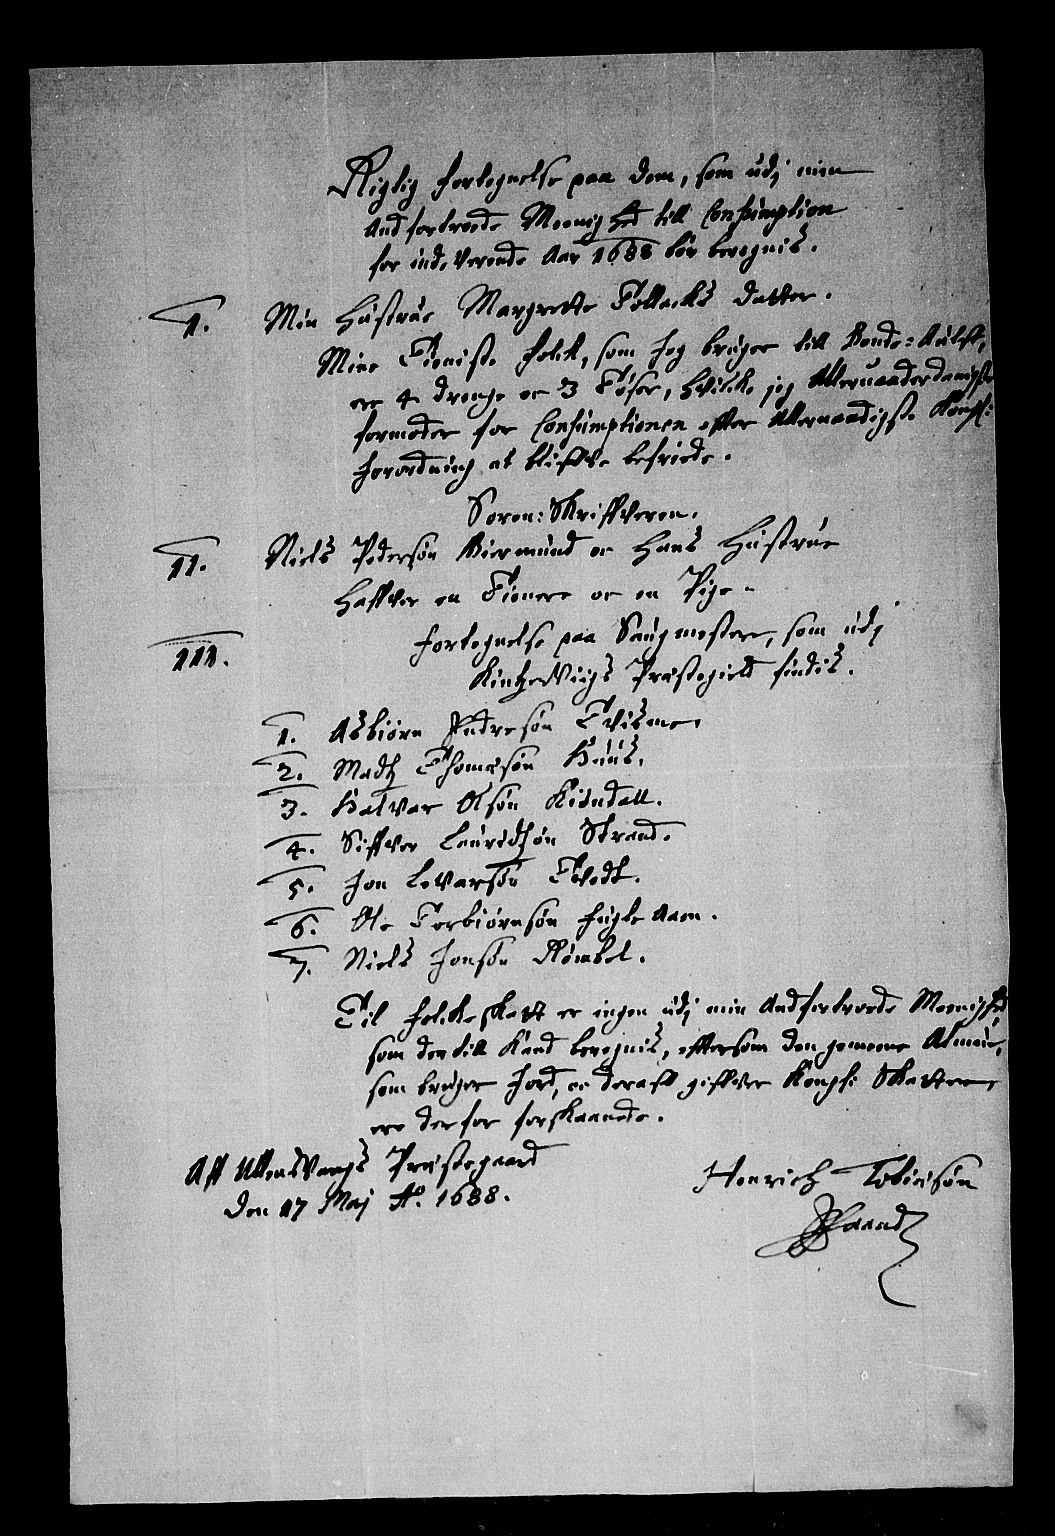 Rigtig fortegnelse paa dem, som udj min
Andfortroede Meenighed till Consumption
for inde Verende Aar 1688 bør beregnis.
1. Min Hustrue Margrette Follachs datter.
Mine Tieniste folck, som Jeg bruger till Bonde: Aulst,
ere 4 drenge oc 3 Tøser, hvilcke jeg Allerunderdanigste
formoder for Consumptionen efter Allernaadigste Kongl:
forordning at bliffve befriede.
Soren: Skriffveren.
11. Niels Pedersøn Biermund oc Hans Hustrue
Haffver en Tienere oc en Pige.
111. Fortegnelse paa Saugmestere, som udj
Kintzerviigs Præstegield findis.
1. Asbiørn Pedersøn Tvisme.
2. Madtz Thomæsøn Huus.
3. Halvar Olsøn Kiøndall.
4. Siffver Lauridtzøn Strand.
5. Jon Levarsøn Tvedt.
6. Ole Torbiørnsøn fugle Aaen.
7. Niels Jonsøn Rømbel.
Til folcke skatt er ingen udj min Andfortroede Meenighed,
som der till Kand beregnis, efftersom den gemeene Almue,
som bruger Jord, oc deraff giffver Kongl: Skatter
ere der for forskaanede.
Aff Ullensvangs Præstegaard
den 17 Maj Ao. 1688.
Henrich Tobiesøn